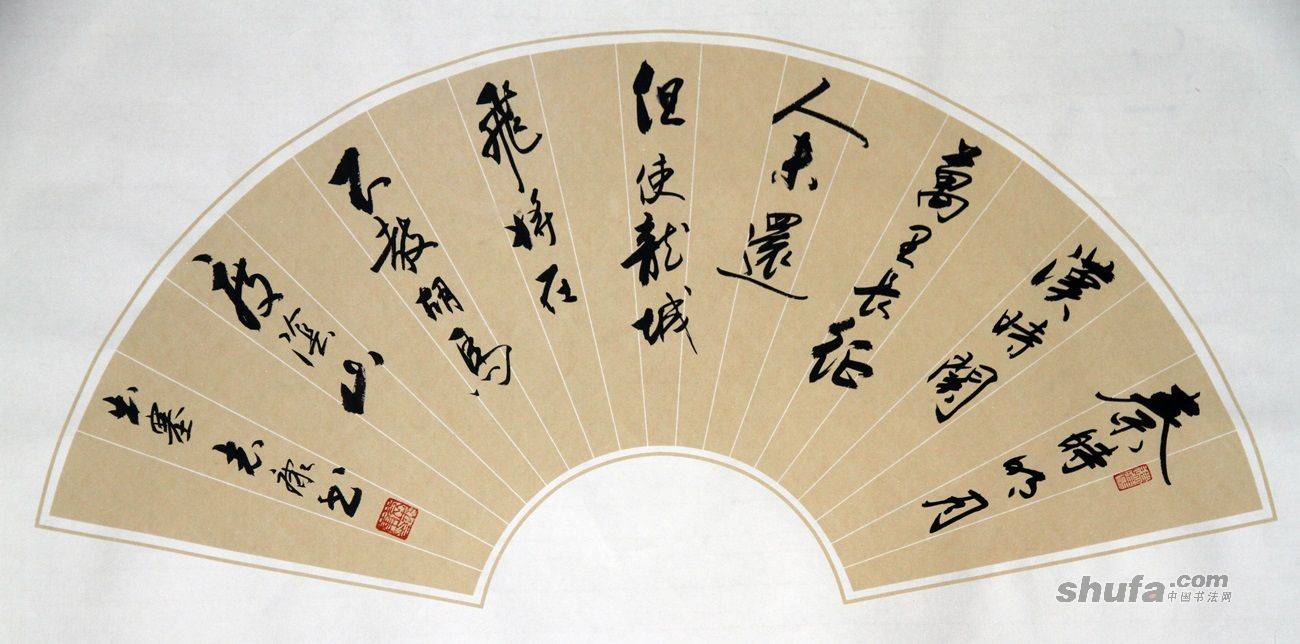 秦時明月
漢時關
萬里长征
人未還
但使龍城
飛将在
不教胡馬
度陰山
出塞 书
shufa.com
中国书法网